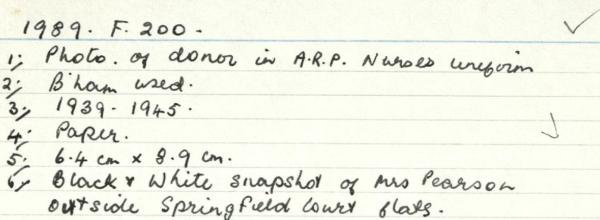 1989. F. 200.
1; Photo. of donor in A.R.P. Nurses uniform
2; B'ham used.
3; 1939-1945.
4; Paper.
5; 6.4 cm x 8.9 cm.
6; Black & White snapshot of Mrs Pearson
outside Springfield Court flats.